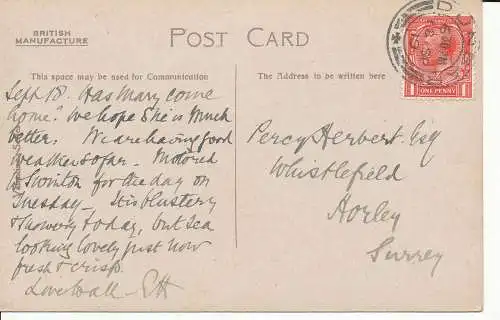 BRITISH
MANUFACTURE
POST CARD
This space may be used for Communication
The Address to be written here
ONE PENNY
1 1
Sept 18. Has Mary come
home? We hope she is much
better. We are having good
weather so far. Motored
Swinton for the day on
Tuesday — It is blustery
& showery today, but sea
looking lovely just now
fresh & crisp.
Love to all — EH
Percy Herbert. Esq
Whistlefield
Horley
Surrey